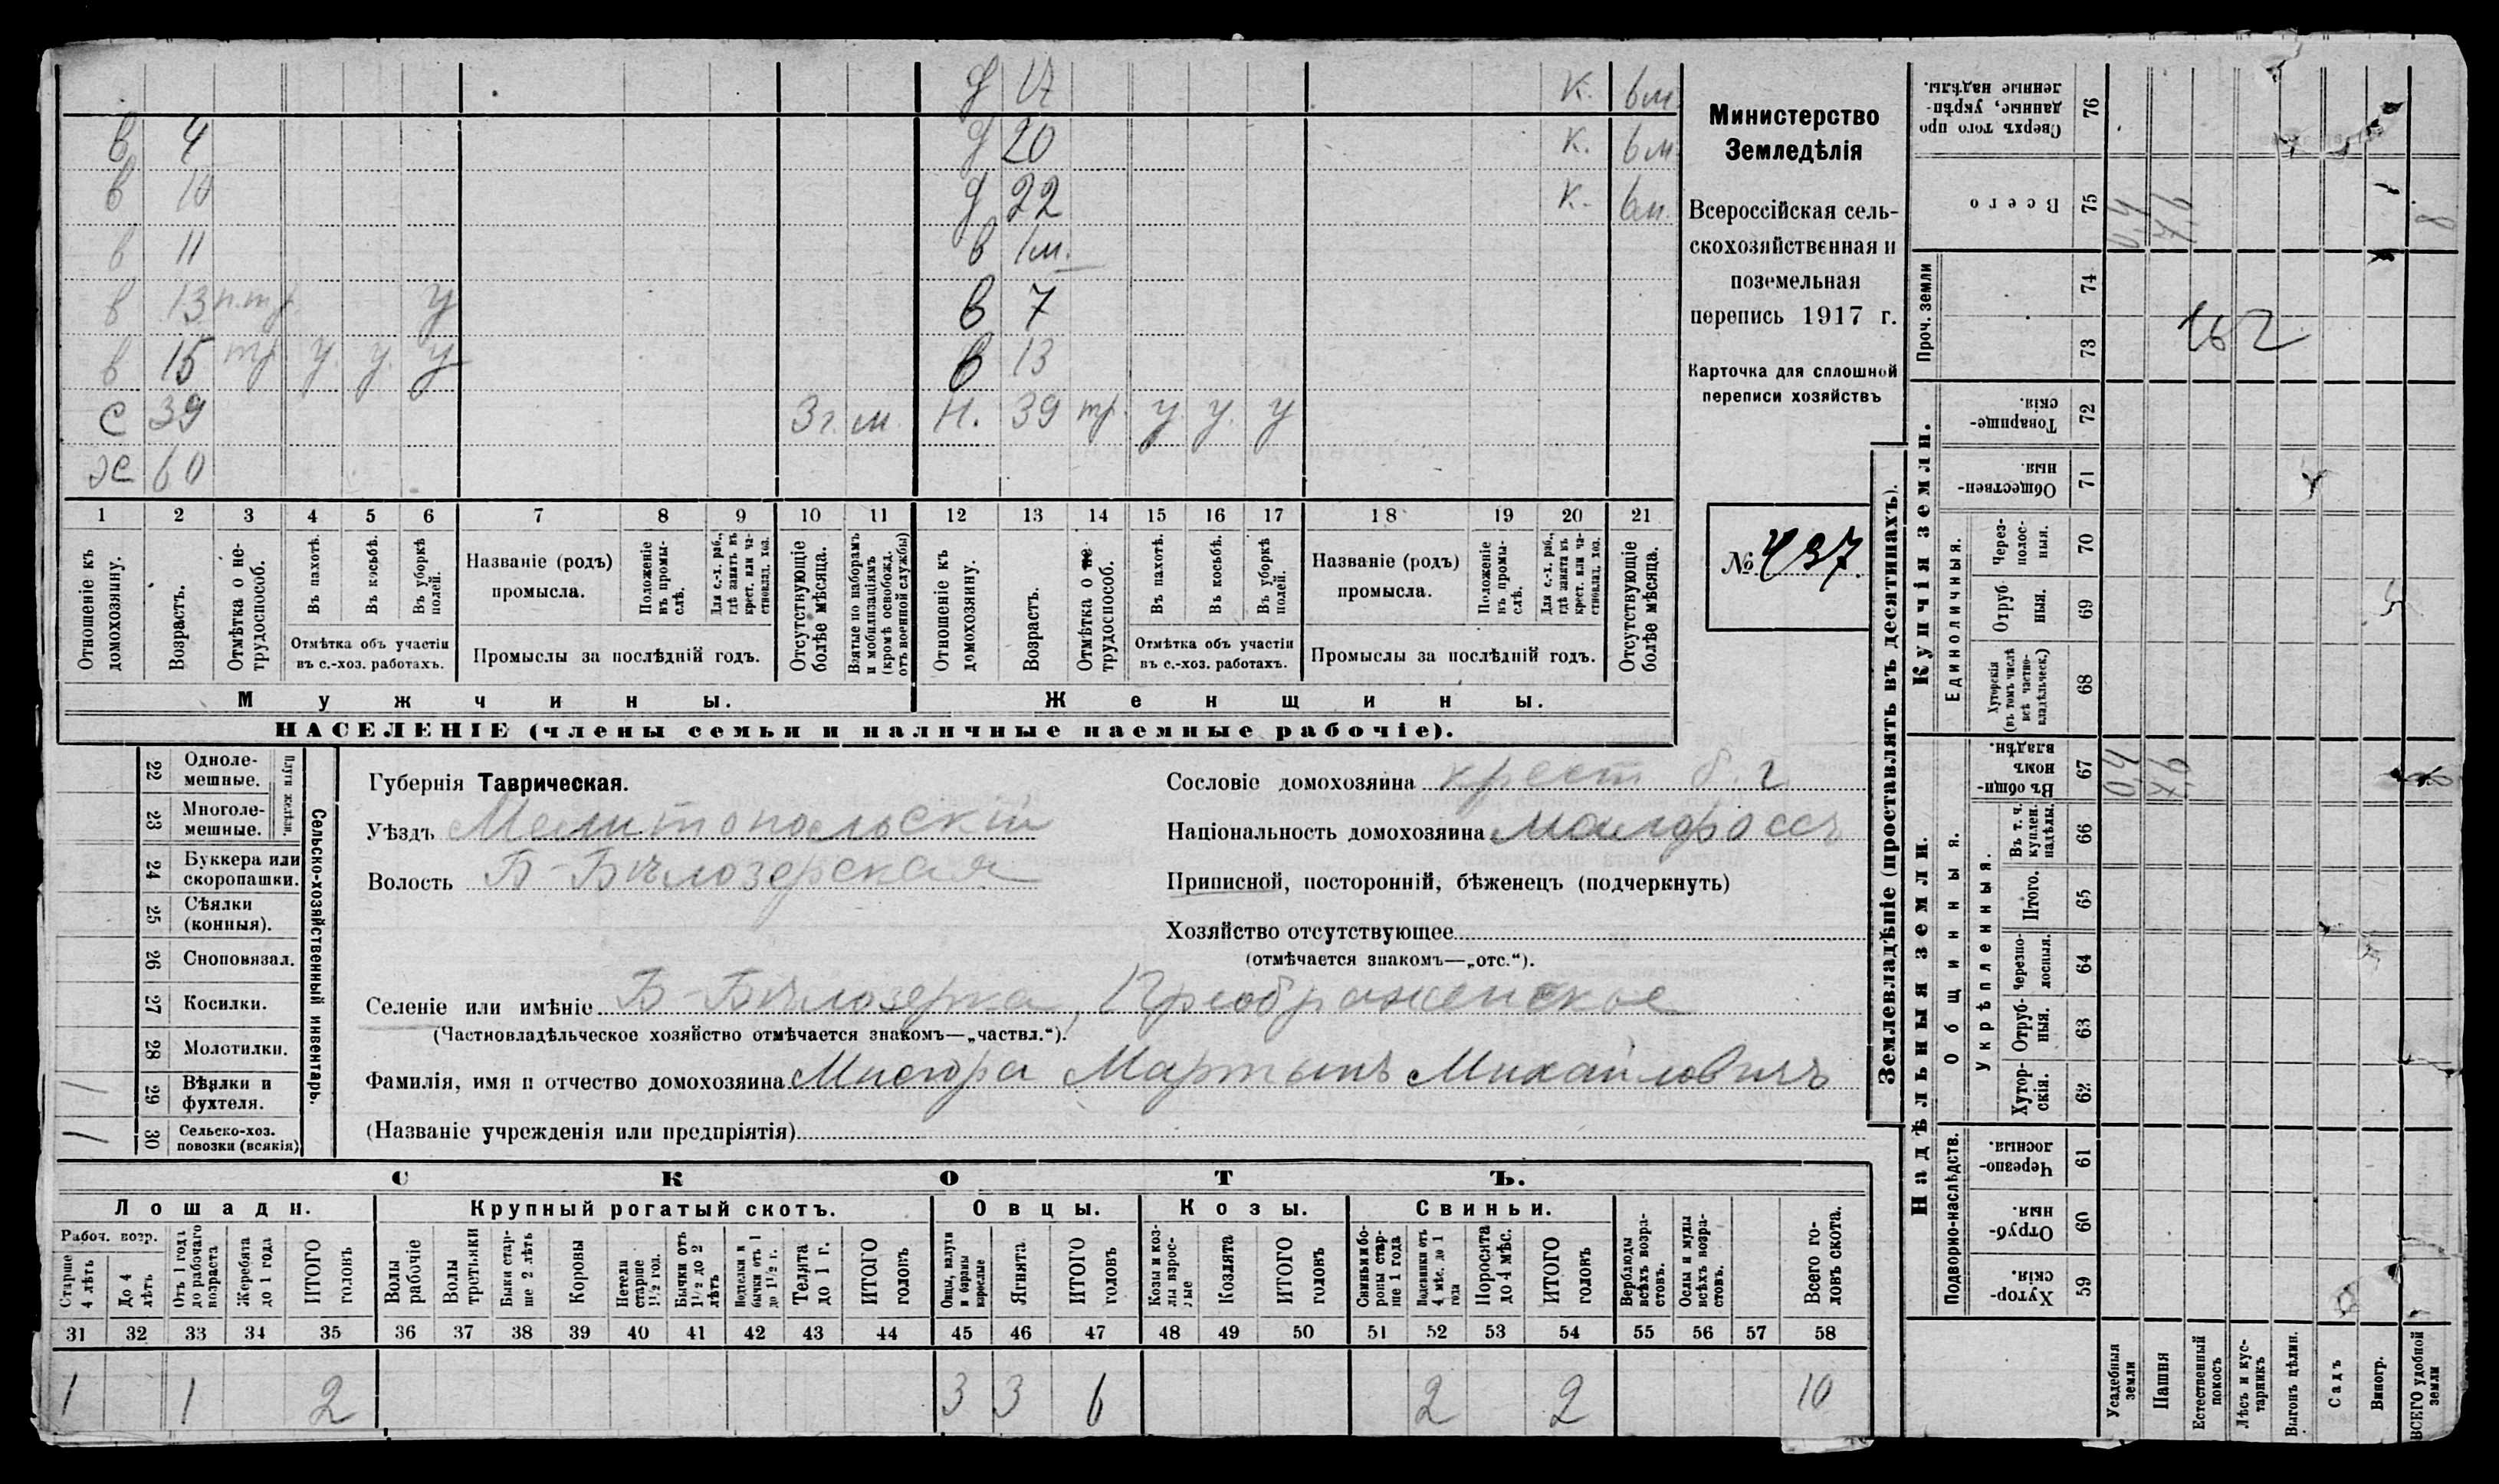 д 17 К. 6м.
в 4 д 20 К. 6м
в 10 д 22 К. 6м.
в 11 в 1м.
в 13 п.тр. у в 7
в 15 тр. у. у. у в 13
С 39 3г. м. Н. 39 тр. у у. у
Ж 60
1 2 3 4 5 6 7 8 9 10 11 12 13 14 15 16 17 18 19 20 21
Отношеніе къ домохозяину.
Возрастъ.
Отмѣтка о не-трудоспособ.
Въ пахотѣ.
Въ косьбѣ.
Въ уборкѣ полей.
Отмѣтка объ участіи
въ с.-хоз. работахъ.
Названіе (родъ)
промысла.
Положеніе въ промы-слѣ.
Для с.-х. раб., гдѣ занятъ въ крест. или ча-стновлад. хоз.
Промыслы за послѣдній годъ.
Отсутствующіе болѣе мѣсяца.
Взятые по наборамъ и мобилизаціямъ (кромѣ освобожд. отъ военной службы)
Отношеніе къ домохозяину.
Возрастъ.
Отмѣтка о не-трудоспособ.
Въ пахотѣ.
Въ косьбѣ.
Въ уборкѣ полей.
Отмѣтка объ участіи
въ с.-хоз. работахъ.
Названіе (родъ)
промысла.
Положеніе въ промы-слѣ.
Для с.-х. раб., гдѣ занятъ въ крест. или ча-стновлад. хоз.
Промыслы за послѣдній годъ.
Отсутствующіе болѣе мѣсяца.
Мужчины. Женщины.
НАСЕЛЕНІЕ (члены семьи и наличные наемные рабочіе).
Министерство
Земледѣлія
Всероссійская сель-
скохозяйственная и
поземельная
перепись 1917 г.
Карточка для сплошной
переписи хозяйствъ
№ 437.
22 Одноле-
мешные.
23 Многоле-
мешные.
Плуги желѣзн.
24 Буккера или
скоропашки.
25 Сѣялки
(конныя).
26 Сноповязал.
27 Косилки.
28 Молотилки.
1 29 Вѣялки и
фухтеля.
1 30 Сельско-хоз.
повозки (всякія)
Сельско-хозяйственный инвентарь.
Губернія Таврическая.
Уѣздъ Мелитопольскій
Волость Б-Бѣлозерская
Сословіе домохозяина крест. б. г
Національность домохозяина малороссъ
Приписной, посторонній, бѣженецъ (подчеркнуть)
Хозяйство отсутствующее
(отмѣчается знакомъ—„отс.“).
Селеніе или имѣніе Б-Бѣлозерка, Преображенское
(Частновладѣльческое хозяйство отмѣчается знакомъ—„частвл.“).
Фамилія, имя и отчество домохозяина Мисюра Мартынъ Михайловичъ
(Названіе учрежденія или предпріятія)
СКОТЪ.
Лошади. Крупный рогатый скотъ. Овцы. Козы. Свиньи.
Рабоч. возр.
Старше 4 лѣтъ
До 4 лѣтъ
Отъ 1 года до рабочаго возраста
Жеребята до 1 года
ИТОГО головъ
Волы рабочіе
Волы третьяки
Быки стар-ше 2 лѣтъ
Коровы
Нетели старше 1½ год.
Бычки отъ 1½ до 2 лѣтъ
Подтелки и бычки отъ 1 до 1½ г.
Телята до 1 г.
ИТОГО головъ
Овцы, валухи и бараны взрослые
Ягнята
ИТОГО головъ
Козы и коз-лы взрос-лые
Козлята
ИТОГО головъ
Свиньи и бо-ровы стар-ше 1 года
Подсвинки отъ 4 мѣс. до 1 года
Поросята до 4 мѣс.
ИТОГО головъ
Верблюды всѣхъ возра-стовъ.
Ослы и мулы всѣхъ возра-стовъ.
Всего го-ловъ скота.
31 32 33 34 35 36 37 38 39 40 41 42 43 44 45 46 47 48 49 50 51 52 53 54 55 56 57 58
1 1 2 3 3 6 2 2 10
Землевладѣніе (проставлять въ десятинахъ).
Надѣльныя земли. Купчія земли. Проч. земли
Подворно-наслѣдств.
Общинныя.
Укрѣпленныя.
Единоличныя.
Хутор-скія. 59
Отруб-ныя. 60
Черезпо-лосныя. 61
Хутор-скія. 62
Отруб-ныя. 63
Черезпо-лосныя. 64
Итого. 65
Въ т. ч. куплен. надѣлы. 66
Въ общин-номъ владѣн. 67
Хуторскія (въ томъ числѣ всѣ частно-владѣльческ.) 68
Отруб-ныя. 69
Через-полос-ныя. 70
Обществен-ныя. 71
Товарище-скія. 72
73
74
Всего 75
Сверхъ того про-данные, укрѣп-ленные надѣлы. 76
162
Усадебныя земли
Пашня
Естественный покосъ
Лѣсъ и кус-тарникъ
Выгонъ цѣлин.
Садъ
Виногр.
ВСЕГО удобной земли
0,4 7,6 8